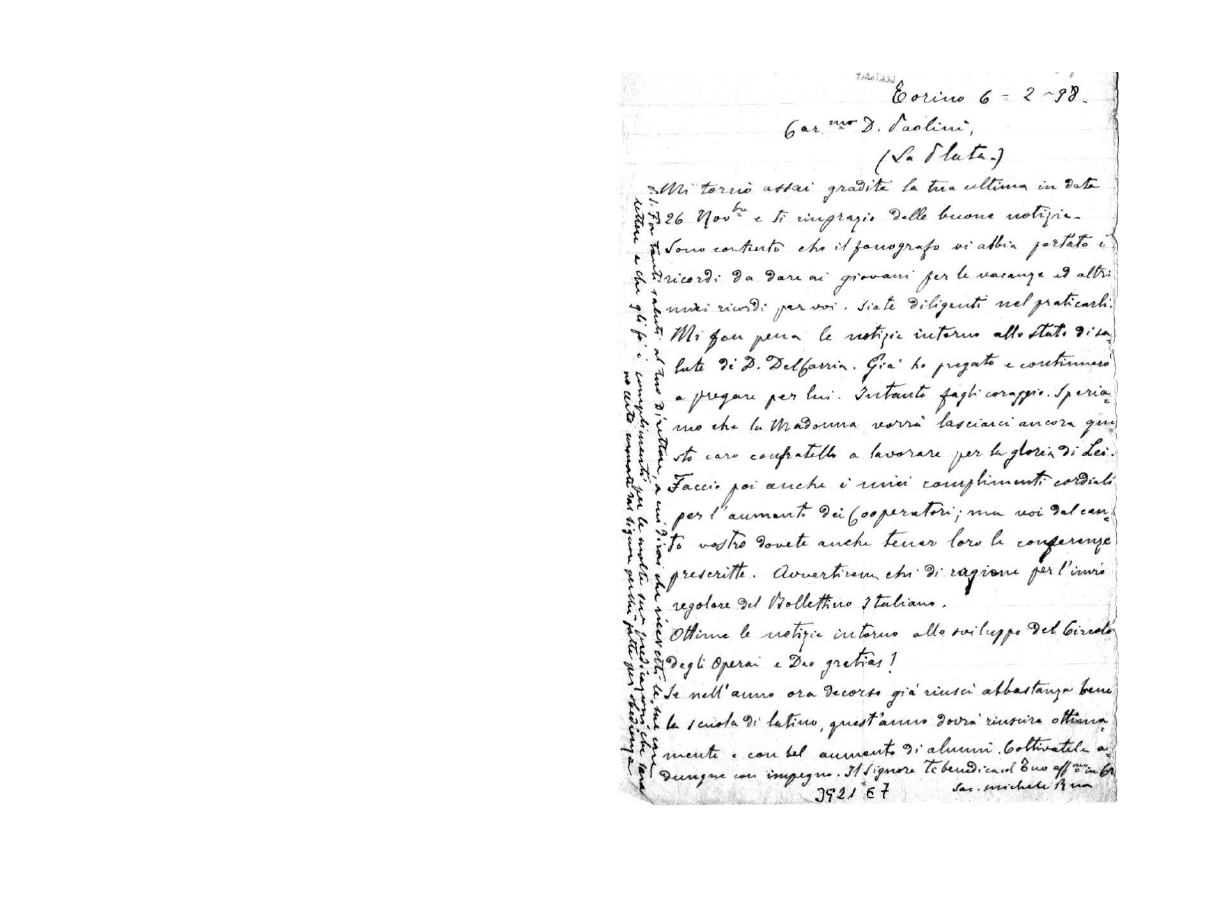 Torino 6 - 2 - 98.
Car.mo D. Paolini,
(La Plata.)
Mi tornò assai gradita la tua ultima in data
26 Novbre e ti ringrazio delle buone notizie.
Sono contento che il fonografo vi abbia portato i
ricordi da dare ai giovani per le vacanze ed altri
miei ricordi per voi. Siate diligenti nel praticarli.
Mi fan pena le notizie intorno allo stato di sa-
lute di D. Già ho pregato e continuerò
a pregare per lui. Intanto fagli coraggio. Speria-
mo che la Madonna vorrà lasciarci ancora que
sto caro confratello a lavorare per la gloria di Lei.
Faccio poi anche i miei complimenti cordiali
per l'aumento dei Cooperatori; ma voi dal can-
to vostro dovete anche tener loro le conferenze
prescritte. Avvertirem chi di ragione per l'invio
regolare del Bollettino Italiano.
Ottime le notizie intorno allo sviluppo del Circolo
degli Operai e Deo gratias!
Se nell'anno ora decorso già riuscì abbastanza bene
la scuola di latino, quest'anno dovrà riuscire ottima-
mente e con bel aumento di alunni. Coltivatela a-
dunque con impegno. Il Signore ti benedica ed Tuo aff.mo in G
Sac. Michele Rua
3921 E7
P.S. Fa tanti saluti al tuo Direttore, a cui dirai che ricevetti le sue care
lettere e che gli fo i complimenti per le molte sue predicazioni che sara
no certo dal Signore perchè fatte per obbedienza